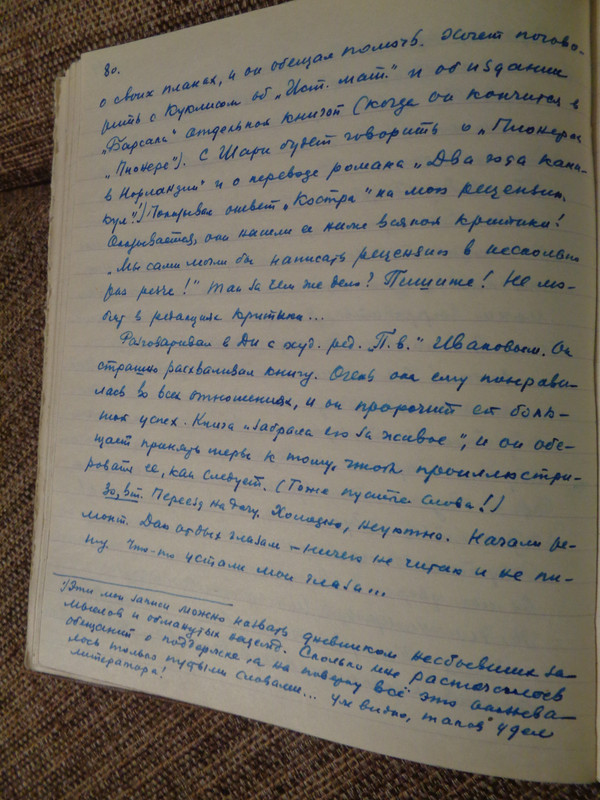 80.
о своих планах, и он обещал помочь. Хочет погово-
рить с Куклисом об „Ист. мат." и об издании
„Барсала" отдельной книгой (когда он кончится в
„Пионере"). С Шари будет говорить о „Пионерах
в Норландии" и о переводе романа „Два года кани-
кул"!) Показывал ответ „Костра" на мою рецензию.
Оказывается, они нашли ее ниже всякой критики!
„Мы сами могли бы написать рецензию в несколько
раз резче!" Так за чем же дело? Пишите! Не мо-
гут в редакциях критики...
Разговаривал в ДИ с худ. ред. „П. в." Ивановым. Он
страшно расхваливал книгу. Очень она ему понрави-
лась во всех отношениях, и он пророчит ей боль-
шой успех. Книга „забрала его за живое", и он обе-
щает принять меры к тому, чтоб проиллюстри-
ровать ее, как следует. (Тоже пустые слова!)
30, вт. Переезд на дачу. Холодно, неуютно. Начали ре-
монт. Даю отдых глазам – ничего не читаю и не пи-
шу. Что-то устали мои глаза...
!) Эти мои записи можно назвать дневником несбывшихся за-
мыслов и обманутых надежд. Сколько мне расточалось
обещаний о поддержке, а на поверку всё это оказыва-
лось только пустыми словами... Уж видно, таков удел
литератора!